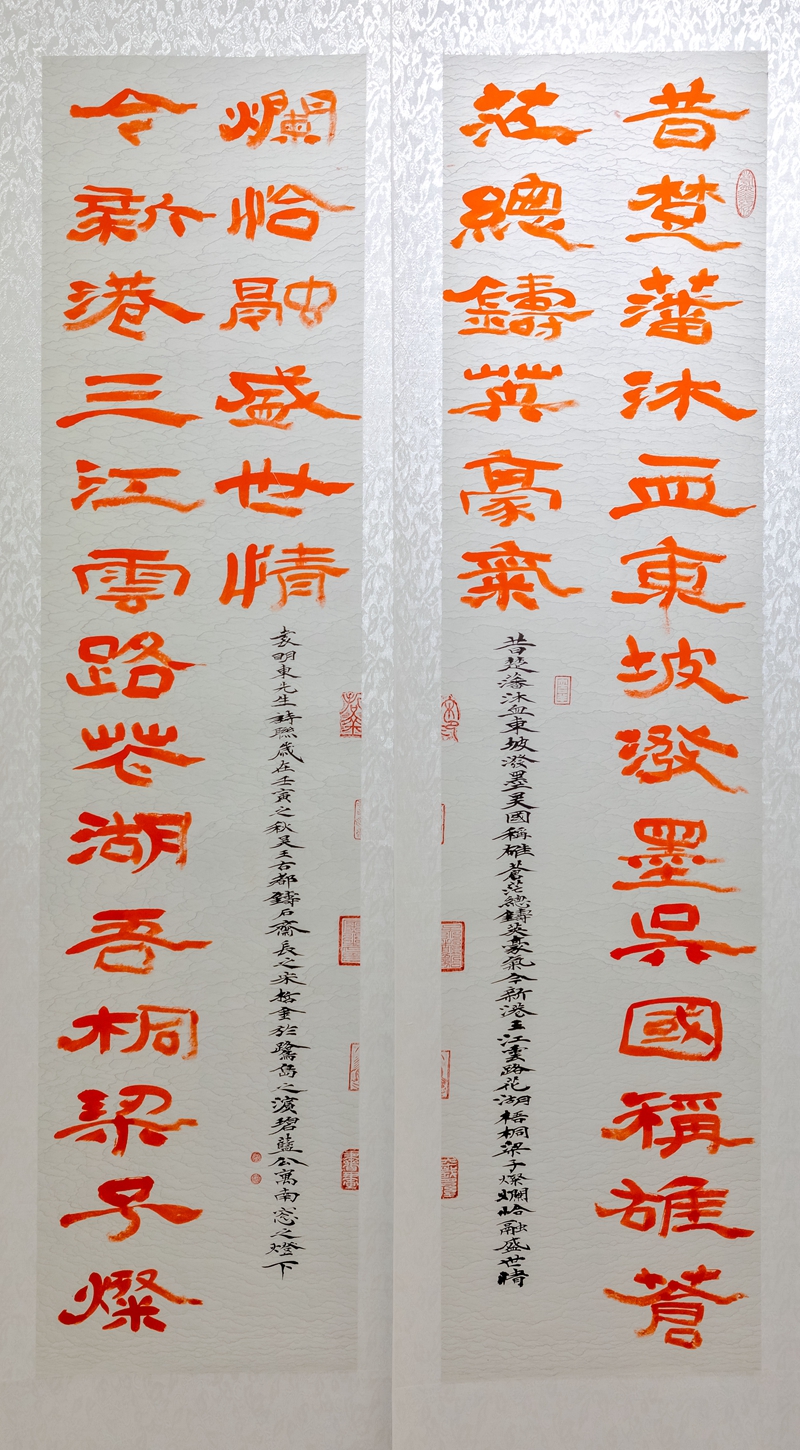 昔楚藩沐血東坡潑墨吳國稱雄蒼
茫總鑄英豪氣
昔楚藩沐血東坡潑墨吳國稱雄蒼茫總鑄英豪氣今新港三江雲路花湖梧桐梁子燦爛恰融盛世情
令新港三江雲路花湖吾桐梁子燦
爛恰融盛世情
袁明東先生詩聯歲在壬寅之秋吳王古都鑄石齋長之宋哲書於鷺島之濱碧藍公寓南窓之燈下